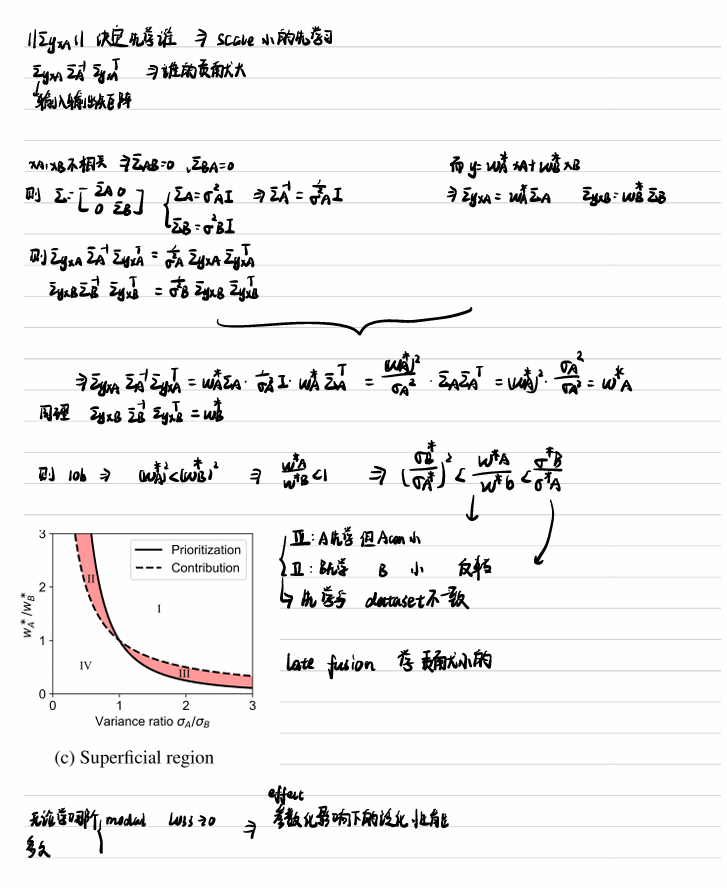 ||ΣyxA|| 决定先学谁 ⇒ scale 小的先学习
ΣyxA ΣA⁻¹ ΣyxAᵀ ⇒ 谁的贡献大
↓
输入输出矩阵
xA,xB不相关 ⇒ ΣAB=0 , ΣBA=0
而 y=wA* xA + wB* xB
则 Σ=[ΣA 0
0 ΣB]
{ΣA=σA²I ⇒ ΣA⁻¹=1/σA² I
ΣB=σB²I
⇒ ΣyxA = wA* ΣA ΣyxB = wB* ΣB
则 ΣyxA ΣA⁻¹ ΣyxAᵀ = 1/σA² ΣyxA ΣyxAᵀ
ΣyxB ΣB⁻¹ ΣyxBᵀ = 1/σB² ΣyxB ΣyxBᵀ
⇒ ΣyxA ΣA⁻¹ ΣyxAᵀ = wA* ΣA · 1/σA² I · wA* ΣAᵀ = (wA*)²/σA² · ΣA ΣAᵀ = (wA*)² · σA²/σA² = w*A
同理 ΣyxB ΣB⁻¹ ΣyxBᵀ = wB*
则 10b ⇒ (wA*)² < (wB*)² ⇒ w*A/w*B < 1 ⇒ (σB*/σA*)² < w*A/w*b < σ*B/σ*A
3
2
1
0
0 1 2 3
Prioritization
Contribution
I
II
III
IV
wA*/wB*
Variance ratio σA/σB
(c) Superficial region
III: A先学 但 A con 小
II: B先学 B 小
先学与 dataset不一致
late fusion 学 贡献大小的
effect
modal loss→0 ⇒ 参数化影响下的泛化性能
多久